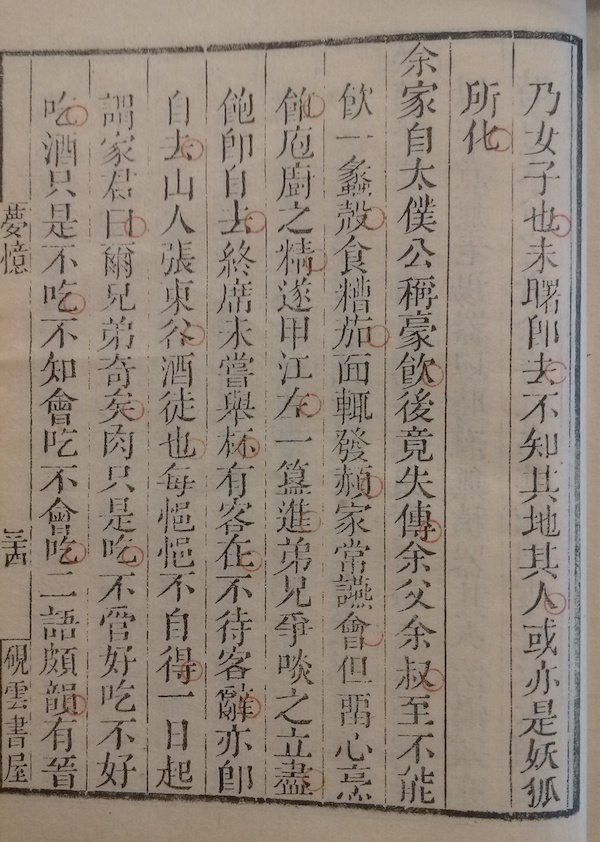 乃女子也未曙卽去不知其地其人或亦是妖狐
所化
余家自太僕公稱豪飲後竟失傳余父余叔至不能
飲一蠡殼食糟茄面輒發頳家常讌會但畱心烹
飪庖廚之精遂甲江左一簋進弟兄爭啖之立盡
飽卽自去終席未嘗舉杯有客在不待客辭亦卽
自去山人張東谷酒徒也每悒悒不自得一日起
謂家君曰爾兄弟奇矣肉只是吃不管好吃不好
吃酒只是不吃不知會吃不會吃二語頗韻有晉
夢憶
硯雲書屋